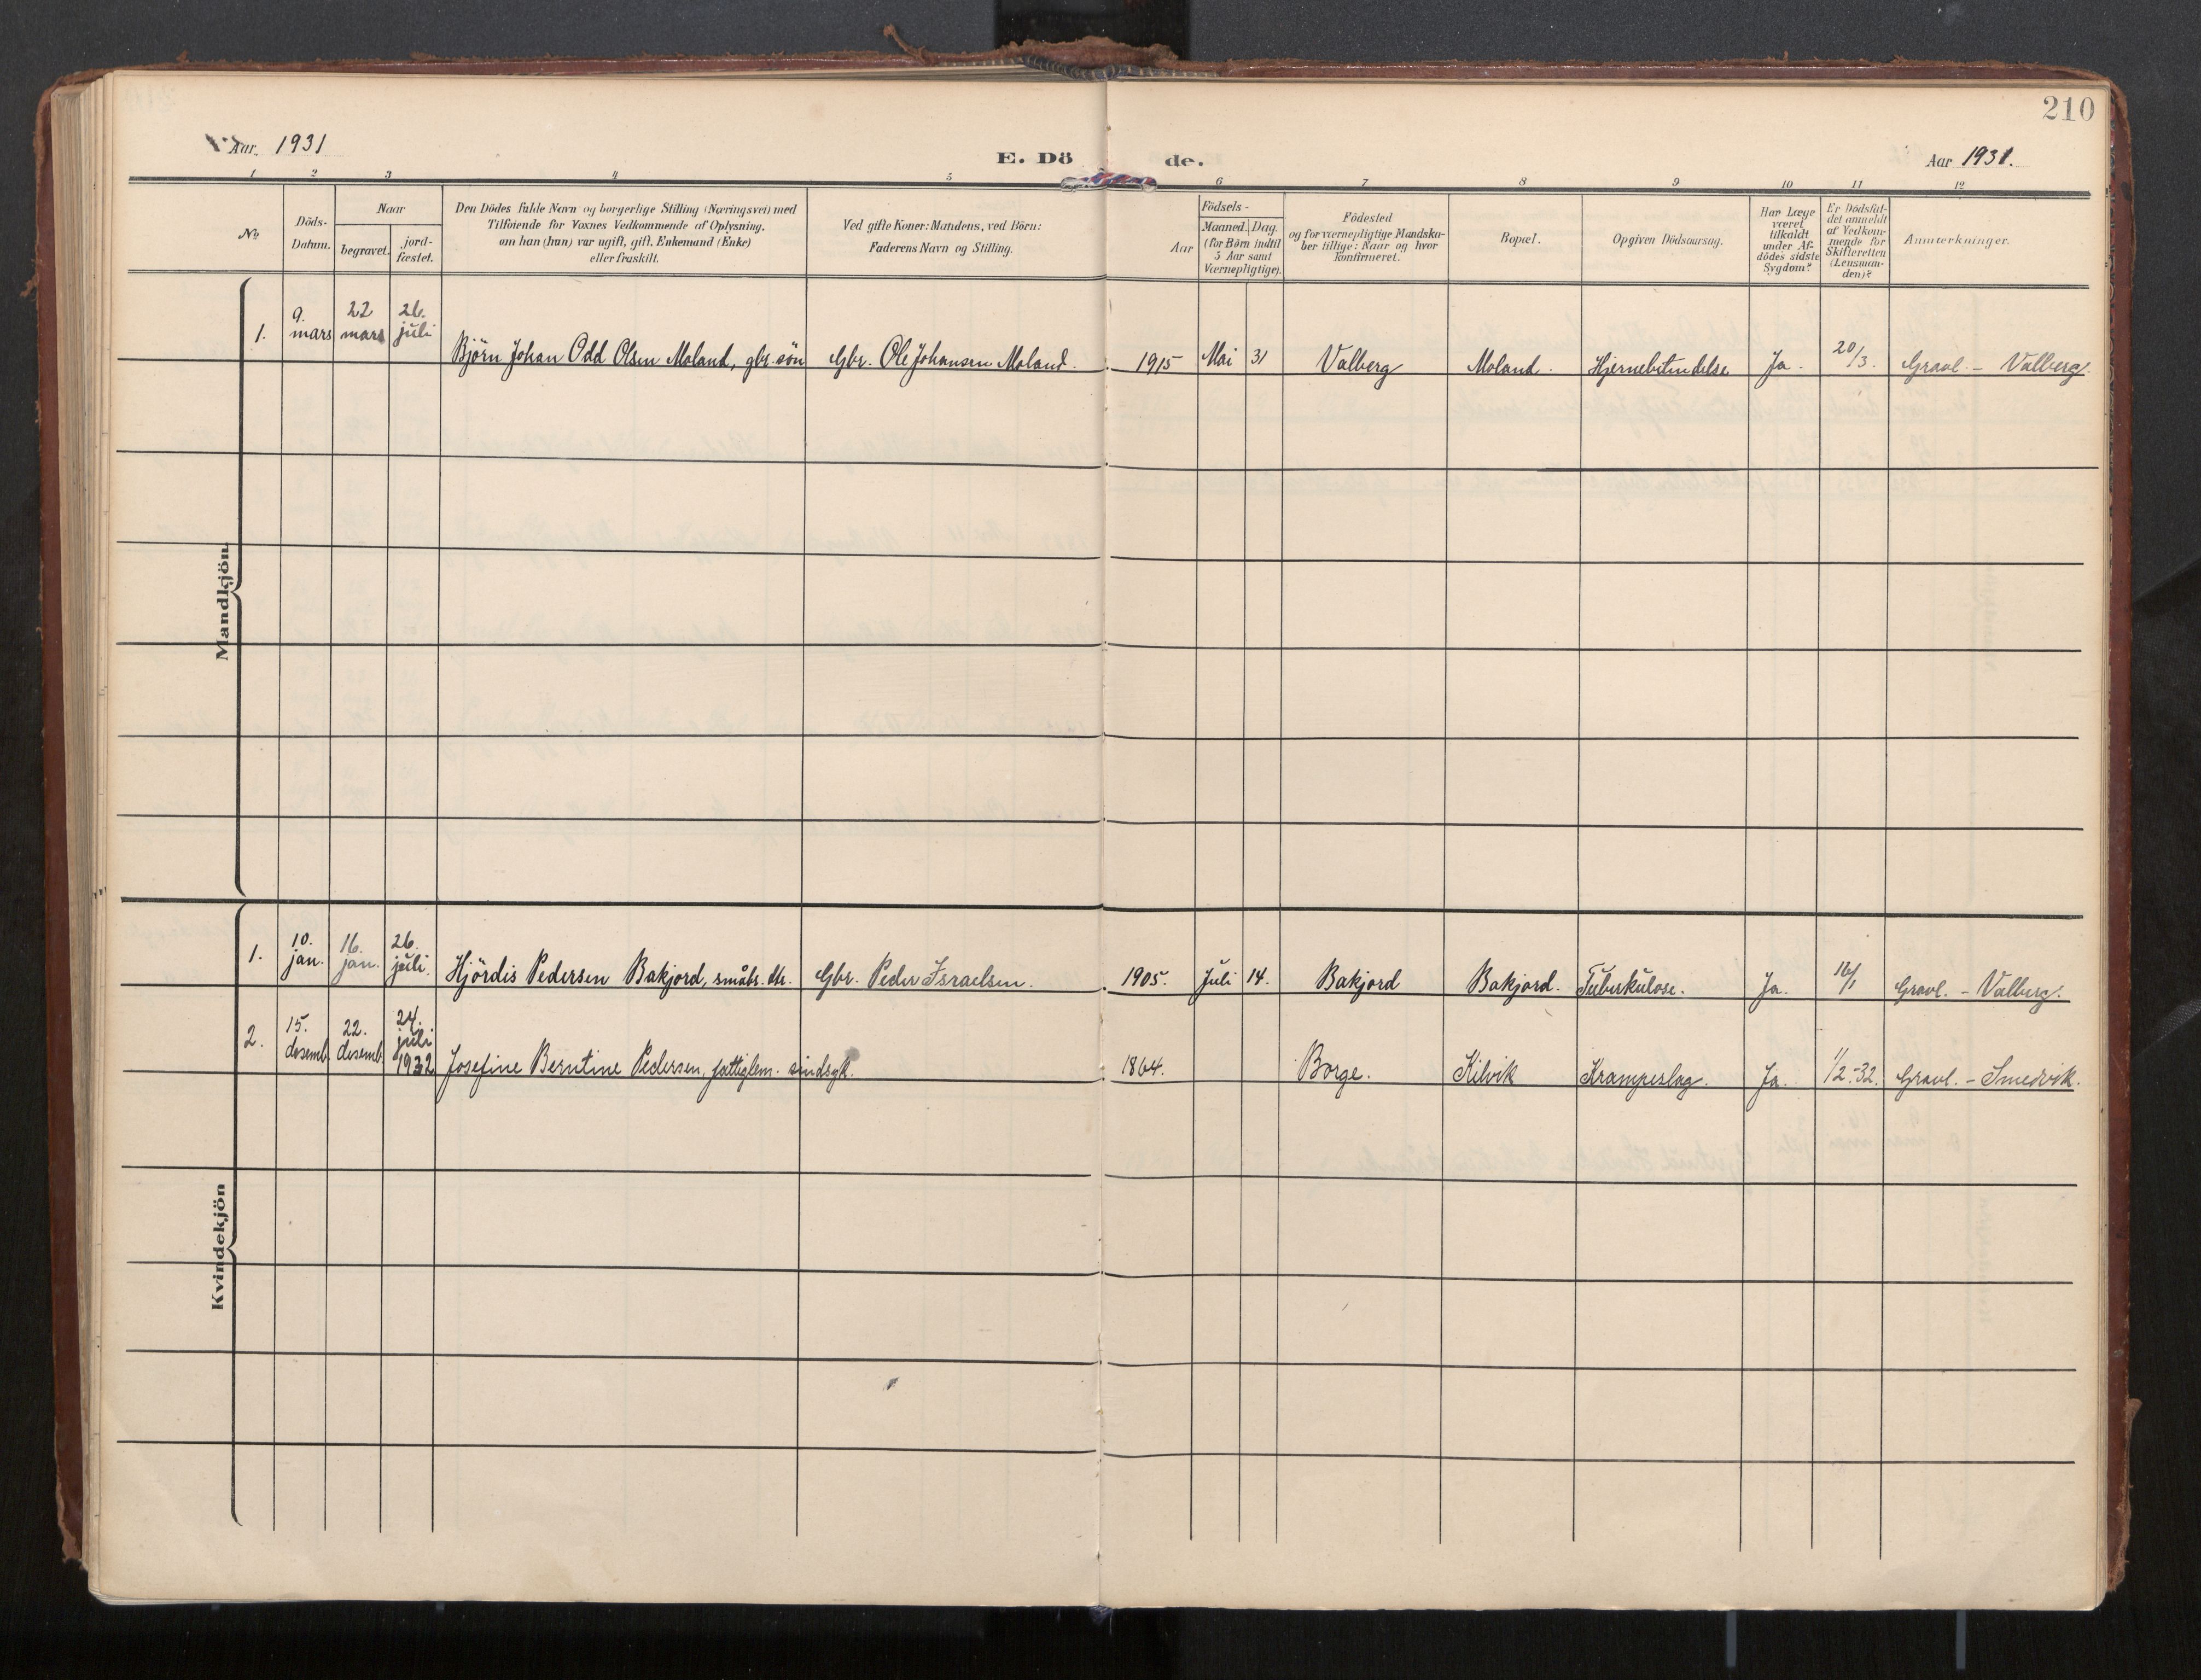 210
Aar 1931
E. Dö
de.
Aar 1931.
1 2 3 4 5 6 7 8 9 10 11 12
No
Döds-
Datum.
Naar
begravet.
jord-
fæstet.
Den Dödes fulde Navn og borgerlige Stilling (Næringsvei) med
Tilföiende for Voxnes Vedkommende af Oplysning,
om han (hun) var ugift, gift, Enkemand (Enke)
eller fraskilt.
Ved gifte Koner: Mandens, ved Börn:
Faderens Navn og Stilling.
Födsels-
Aar
Maaned.
Dag.
(for Börn indtil
5 Aar samt
Værnepligtige).
Födested
og for værnepligtige Mandska-
ber tillige: Naar og hvor
konfirmeret.
Bopæl.
Opgiven Dödsaarsag.
Har Læge
været
tilkaldt
under Af-
dödes sidste
Sygdom?
Er Dödsfal-
det anmeldt
af Vedkom-
mende for
Skifteretten
(Lensman-
den)?
Anmærkninger.
Mandkjön.
1. 9. mars 22 mars 26. juli Björn Johan Odd Olsen Moland, gbr. sön Gbr. Ole Johansen Moland. 1915 Mai 31 Valberg Moland. Hjernebetendelse Ja. 20/3. Gravl. - Valberg.
Kvindekjön
1. 10. jan. 16. jan. 26. juli. Hjördis Pedersen Bakjord, småbr. dtr. Gbr. Peder Israelsen. 1905. Juli 14. Bakjord Bakjord. Tuberkulose. Ja. 16/1 Gravl. - Valberg.
2. 15. desemb. 22. desemb. 24. juli 1932 Josefine Berntine Pedersen, fattiglem. sindsyk. 1864. Borge. Kilvik Krampeslag. Ja. 1/2-32. Gravl. - Smedvik.